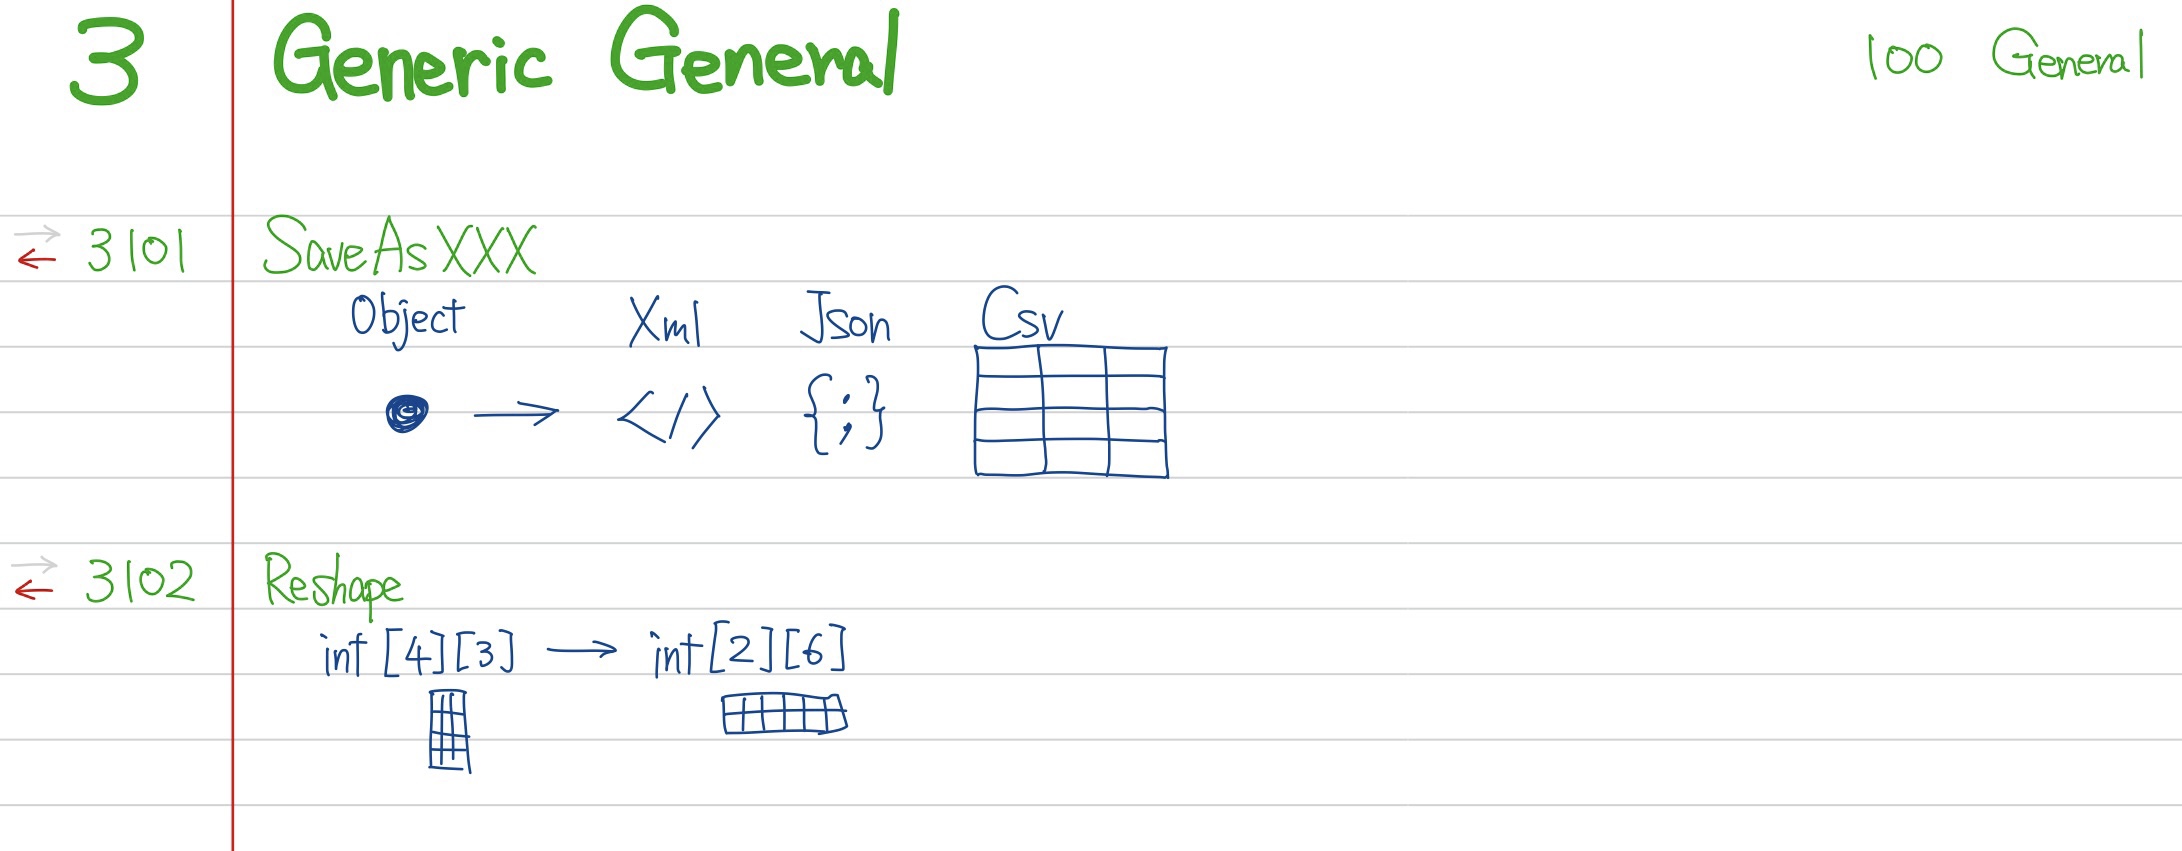 3 Generic General 100 General
3101 SaveAsXXX
Object Xml Json Csv
</> {:;}
3102 Reshape
int[4][3] → int[2][6]